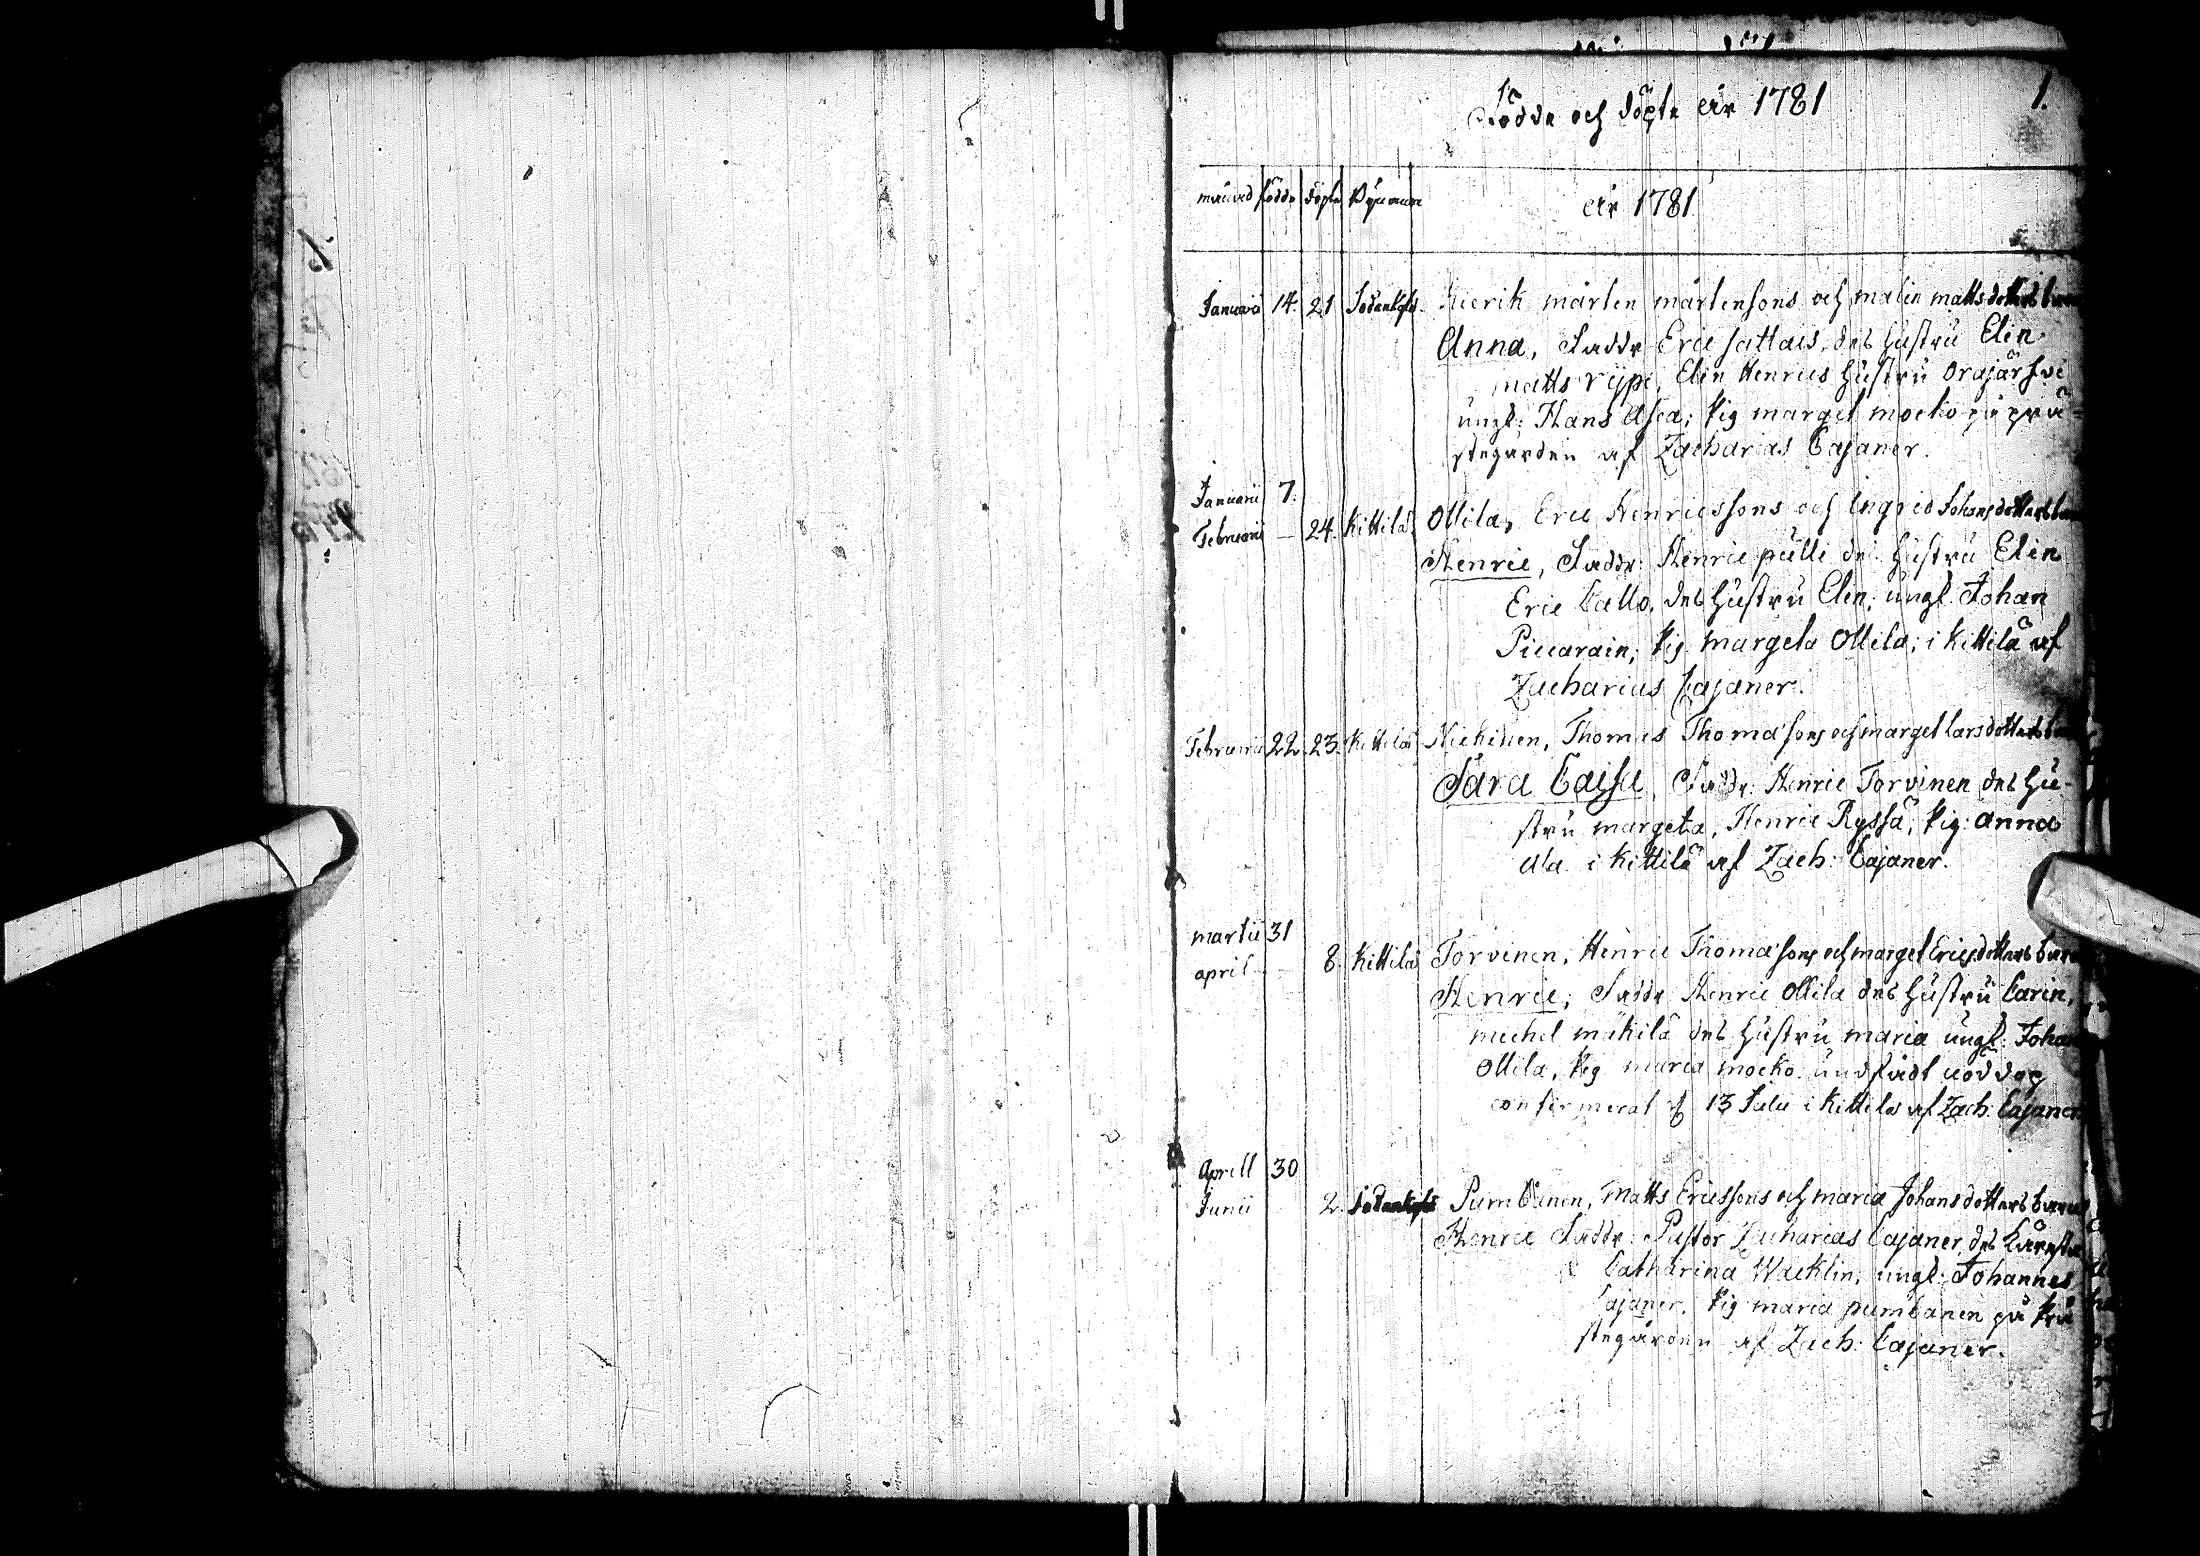 Födde och döpte åhr 1781
1.
månad födde döpte Byarnam
åhr 1781
Januarii 14. 21 Sodankylä. Kierik mårten mårtensons och malin mattsdotters barn
Anna, Faddr Eric sattais, des hustru Elin
matts rÿpi, Elin Henrics hustru orajärfvi
ungl: Hans Asca; Pig margel mocko på prä=
stegården af Zacharias Cajaner.
Januarii 7.
Februarii — 24. Kittilä Ollila, Eric Henricssons och Ingrid Johansdotters barn
Henric, Faddr: Henric pulli des hustru Elin
Eric Callo, des hustru Elin; ungl. Johan
Piccarain; Pig margeta Ollila; i Kittilä af
Zacharias Cajaner.
Februarii 22. 23. Kittilä Niekinen, Thomas Thomasons och margel larsdotters barn
Sara Caisa, Faddr: Henric Torvinen des hu-
stru margeta, Henric Ryssä, Pig: anna
Ala i Kittilä af Zach: Cajaner.
martii 31
april — 8. Kittilä Torvinen, Henric Thomasons och margel Ericsdotters barn
Henric; Faddr Henric Ollila des hustru Carin,
michel mikilä des hustru maria ungl: Johan
Ollila, Pig maria mocko undfådt nöddop
confirmerat d 13 Julii i Kittilä af Zach: Cajaner
Aprill 30
Junii 2. Sodankylä Pumbanen, Matts Ericssons och maria Johansdotters barn
Henric Faddr: Pastor Zacharias Cajaner, des käresta
Catharina Wacklin, ungl: Johannes
Cajaner, Pig maria pumbanen på Prä
stegården af Zach: Cajaner.